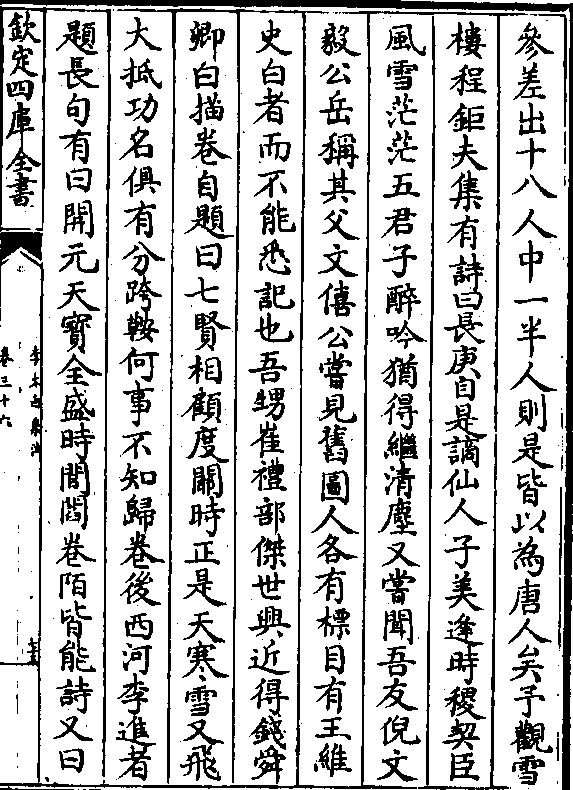 參差出十八人中一半人則是皆以為唐人矣予觀雪
樓程鉅夫集有詩曰長庚自是謫仙人子美逢時稷契臣
風雪茫茫五君子醉吟猶得繼清塵又嘗聞吾友倪文
毅公岳稱其父文僖公嘗見舊圖人各有標目有王維
史白者而不能悉記也吾甥崔禮部傑世興近得錢舜
卿白描卷自題曰七賢相顧度關時正是天寒雪又飛
大抵功名俱有分跨鞍何事不知歸卷後西河李進者
題長句有曰開元天寶全盛時閭閻巷陌皆能詩又曰
欽定四庫全書
李太白集注
卷三十六